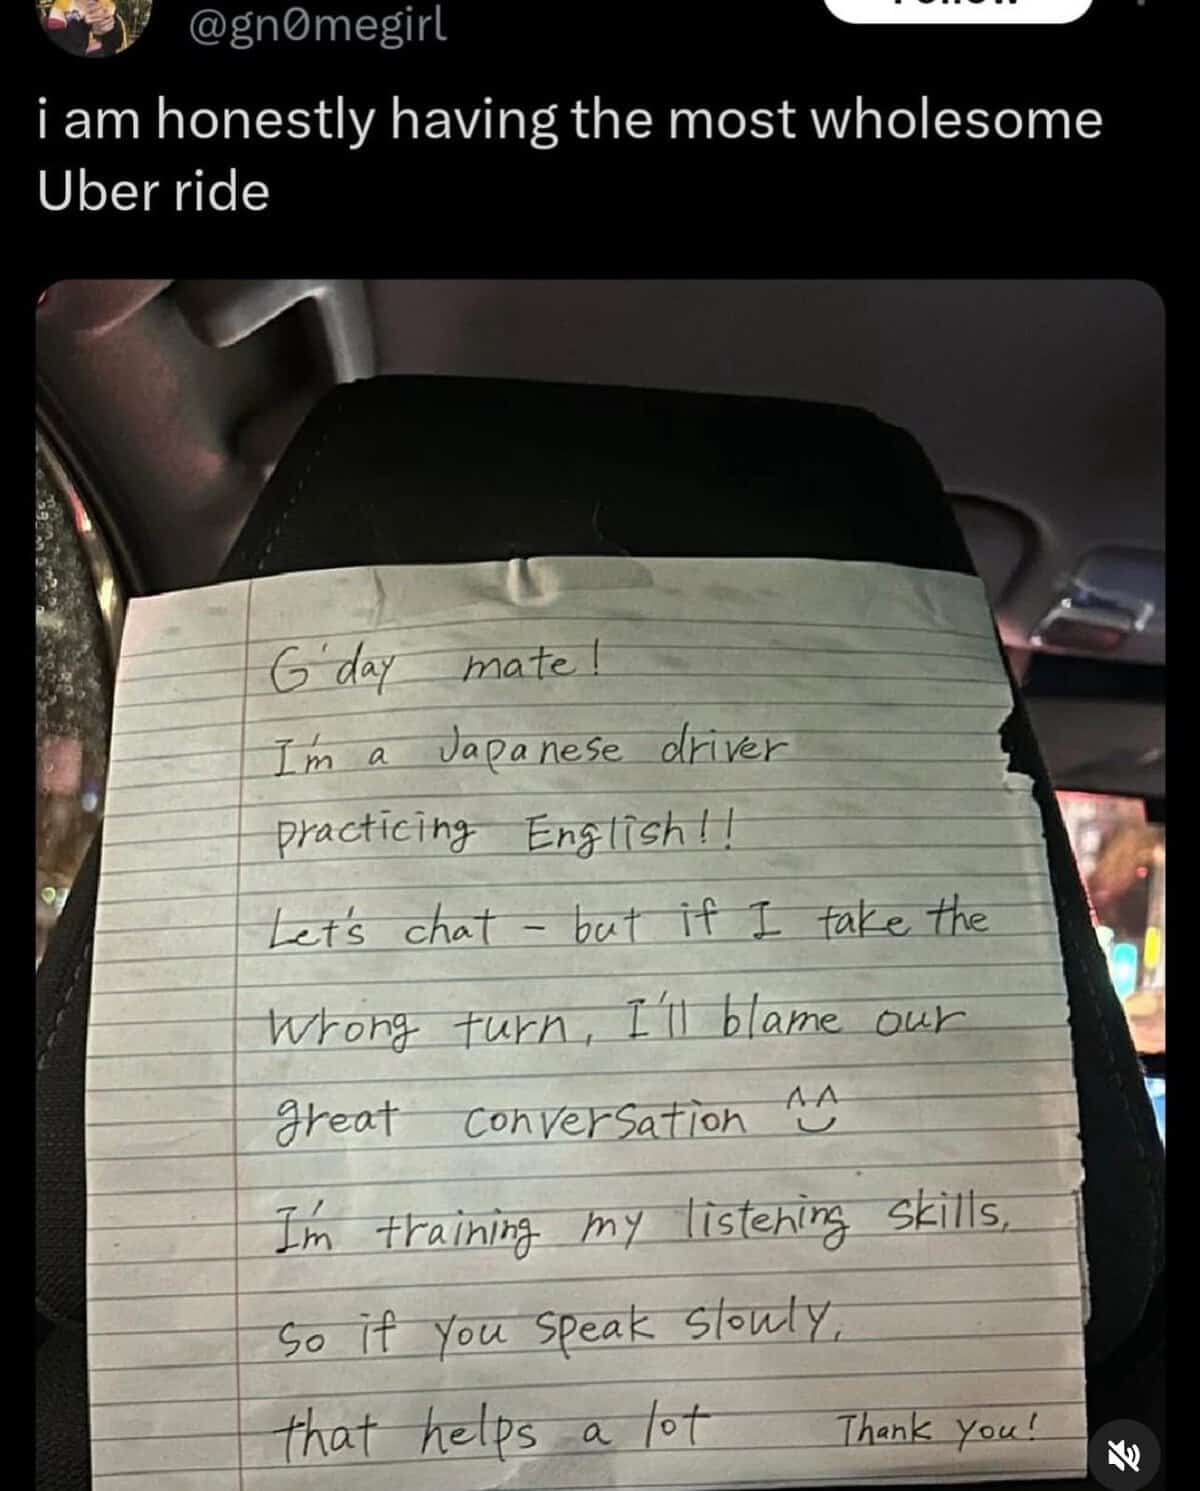 @gn0megirl
i am honestly having the most wholesome
Uber ride
G'day mate!
I'm a Japanese driver
practicing English!!
Let's chat - but if I take the
wrong turn, I'll blame our
great conversation ^^
I'm training my listening skills,
so if you speak slowly,
that helps a lot Thank you!